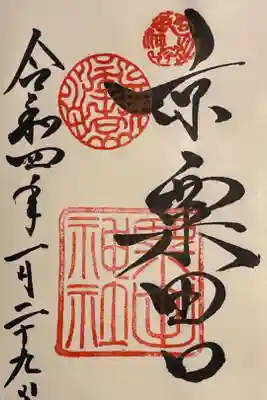 京粟田口
令和四年一月二十九日
粟田神社